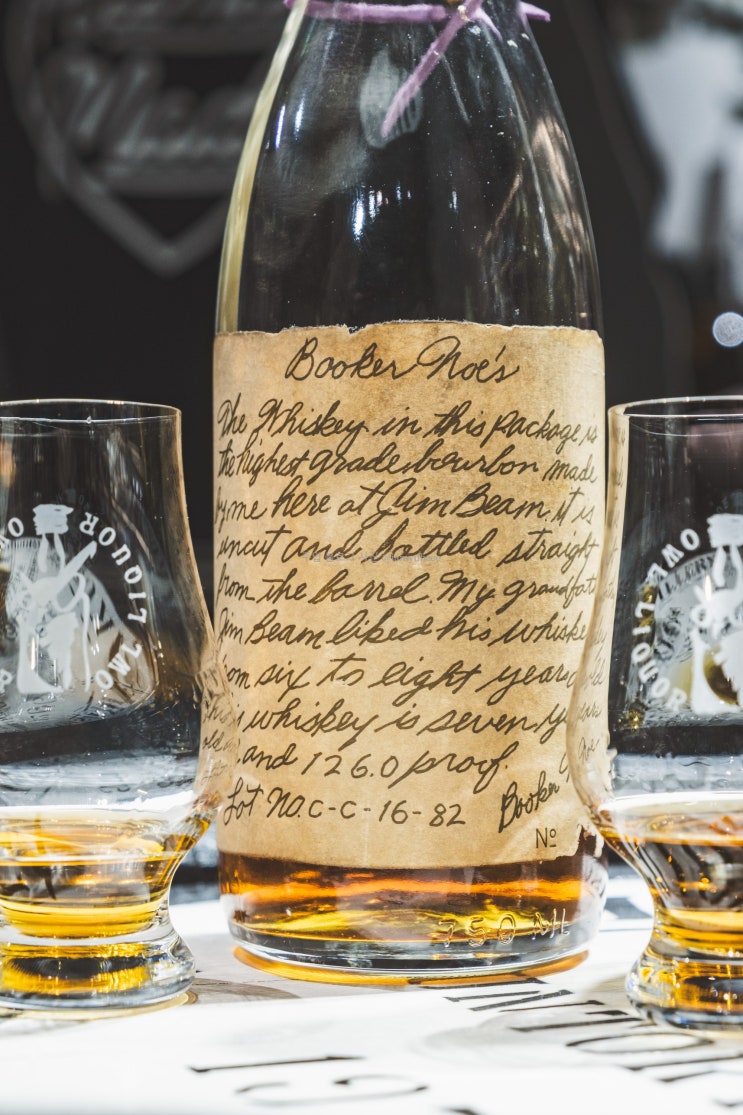 Booker Noe's
The Whiskey in this package is
the highest grade bourbon made
by me here at Jim Beam, it is
uncut and bottled straight
from the barrel. My grandfat
Jim Beam liked his whiske
om six to eight years
whiskey is seven y
and 126.0 proof.
Lot NO. C-C-16-82 Booker
Nº
750 ML
LIQUOR
OWL
OWL
LIQUOR